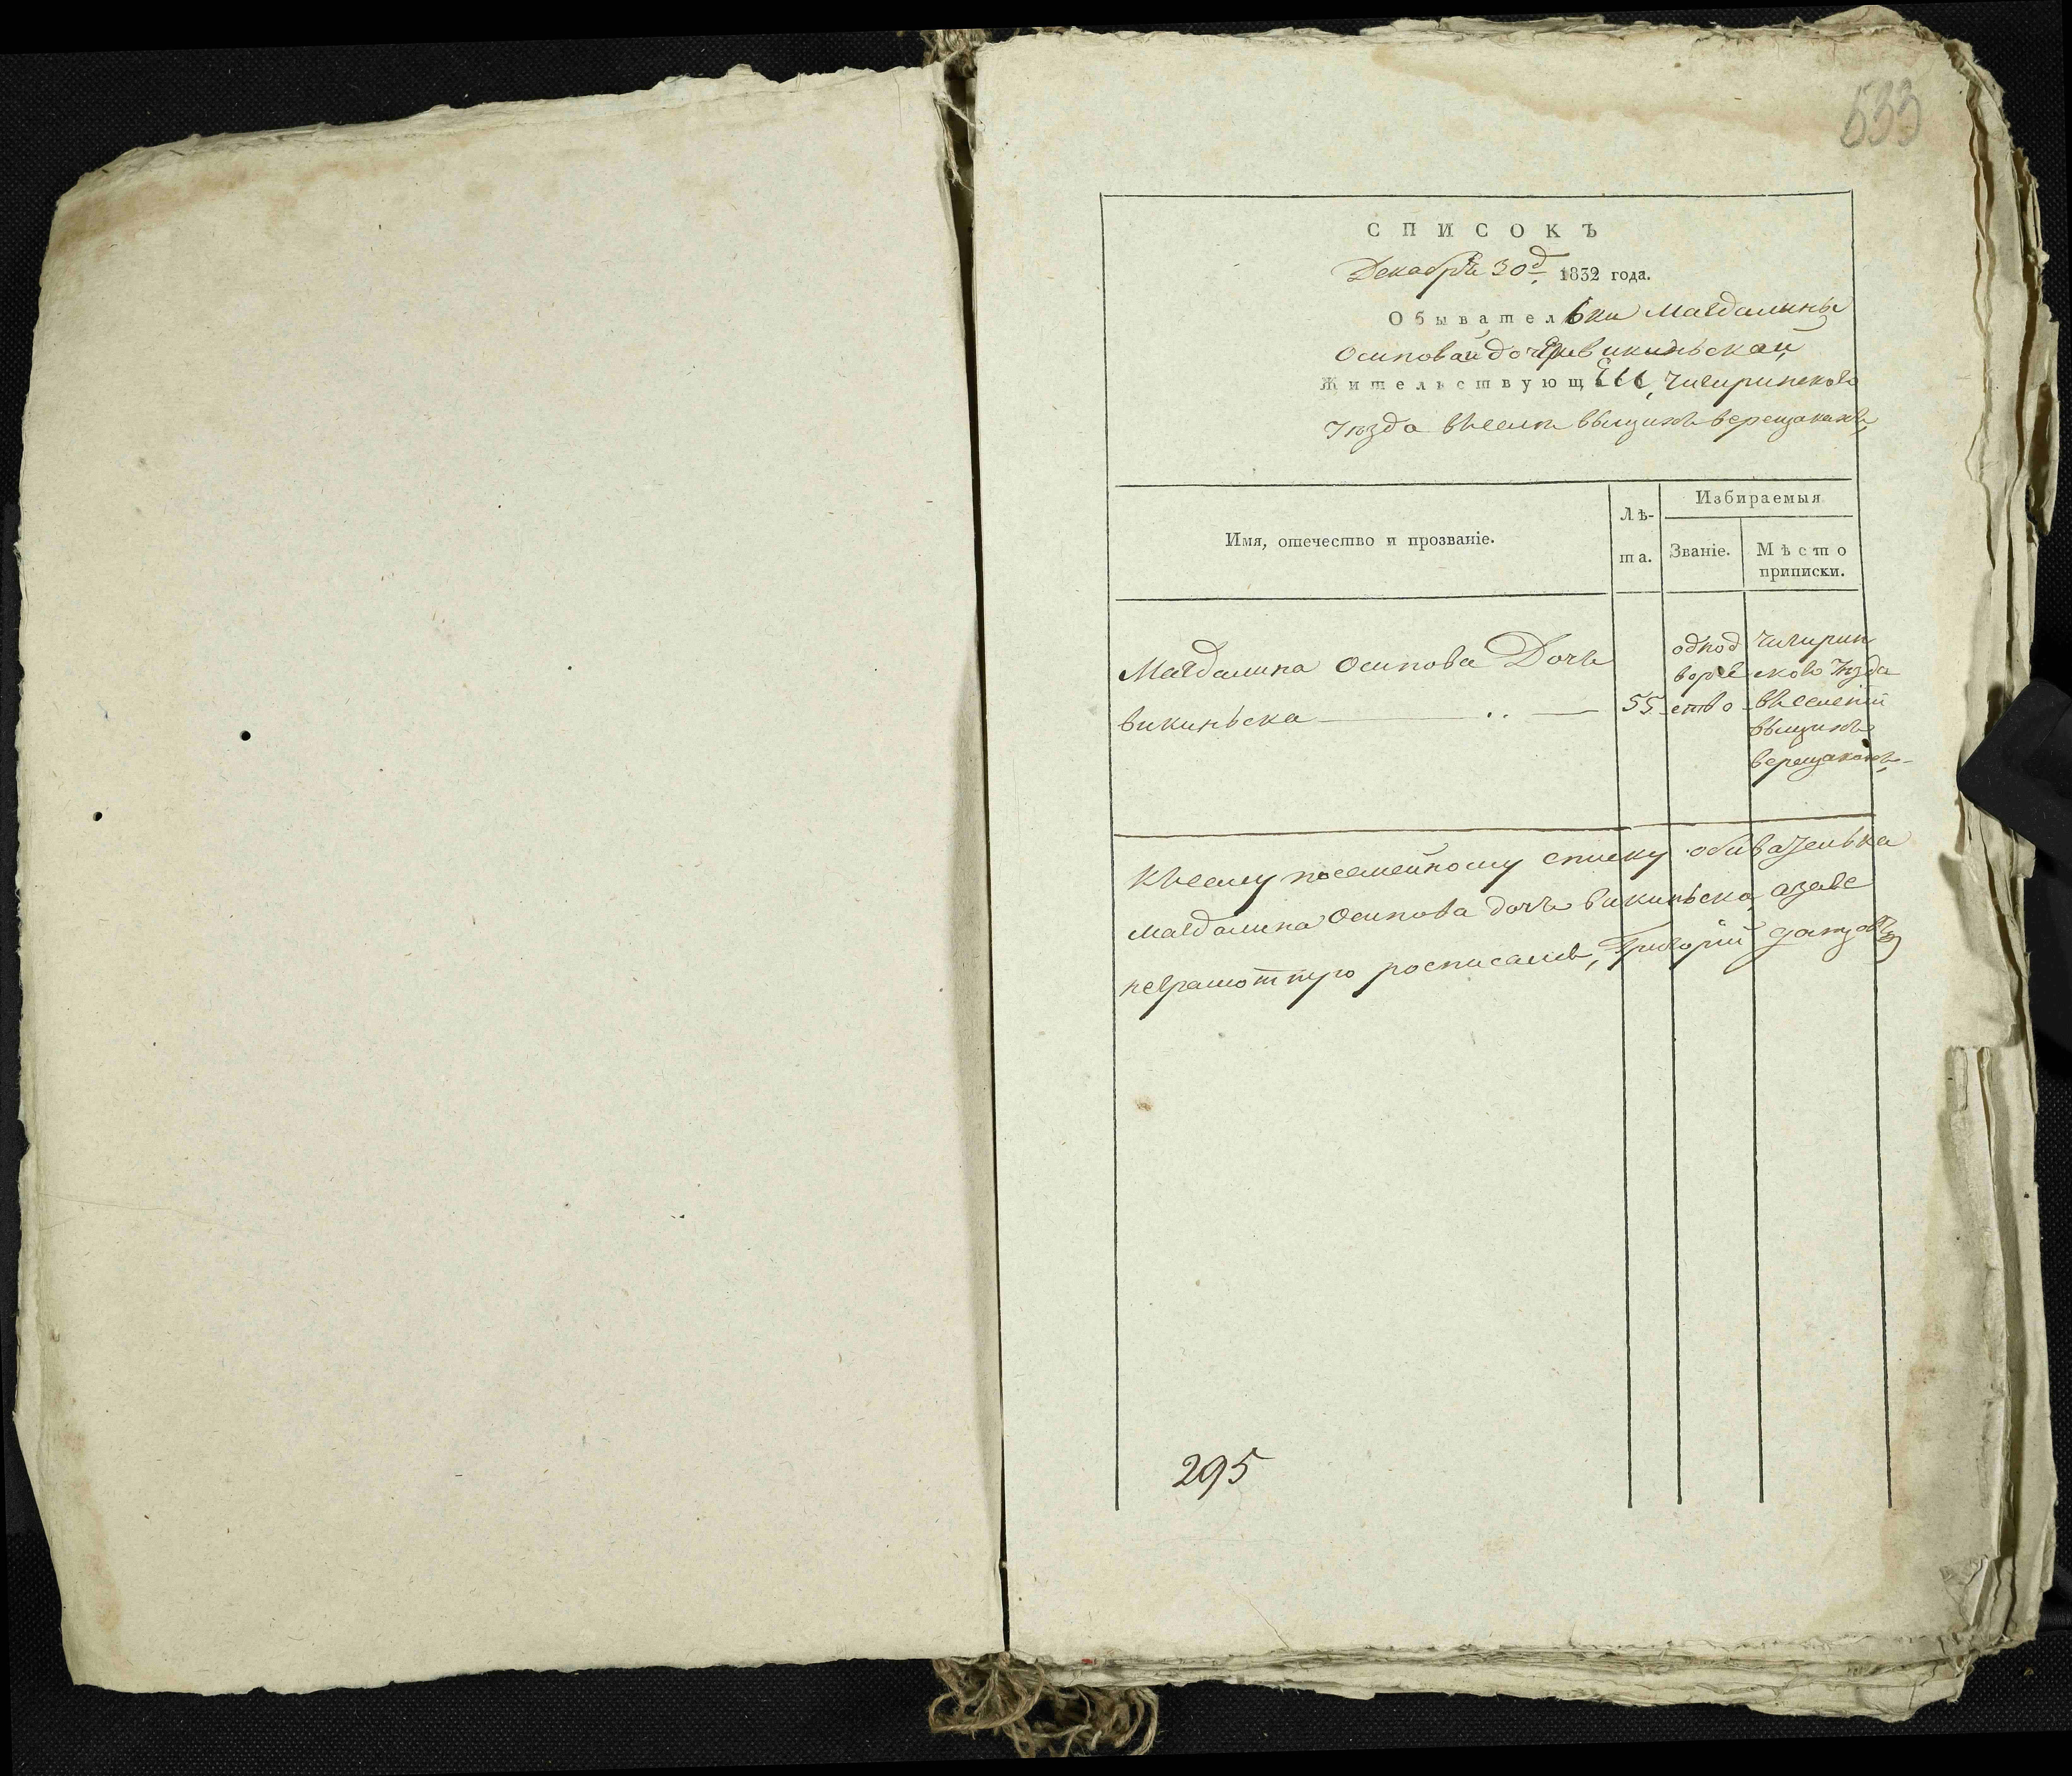 533
СПИСОКЪ
Декабря 30д 1832 года.
Обывательки Магдалыны
Осиповай дочери викиньской
Жительствующей, Чигиринсково
Уѣзда вьселѣ выщихъ верещакахъ,
Имя, отечество и прозваніе.
Лѣ-
та.
Избираемыя
Званіе.
Мѣсто
приписки.
Магдалина Осипова Дочь
викиньска
55
однод
ворче
ство
Чигирин
сково Уѣзда
вьселеніи
выщихъ
верещакахъ
Кьсему посемейному списку обивателька
Магдалина Осипова дочь викиньска, азаее
неграмоттую росписалсь, Григорій
295